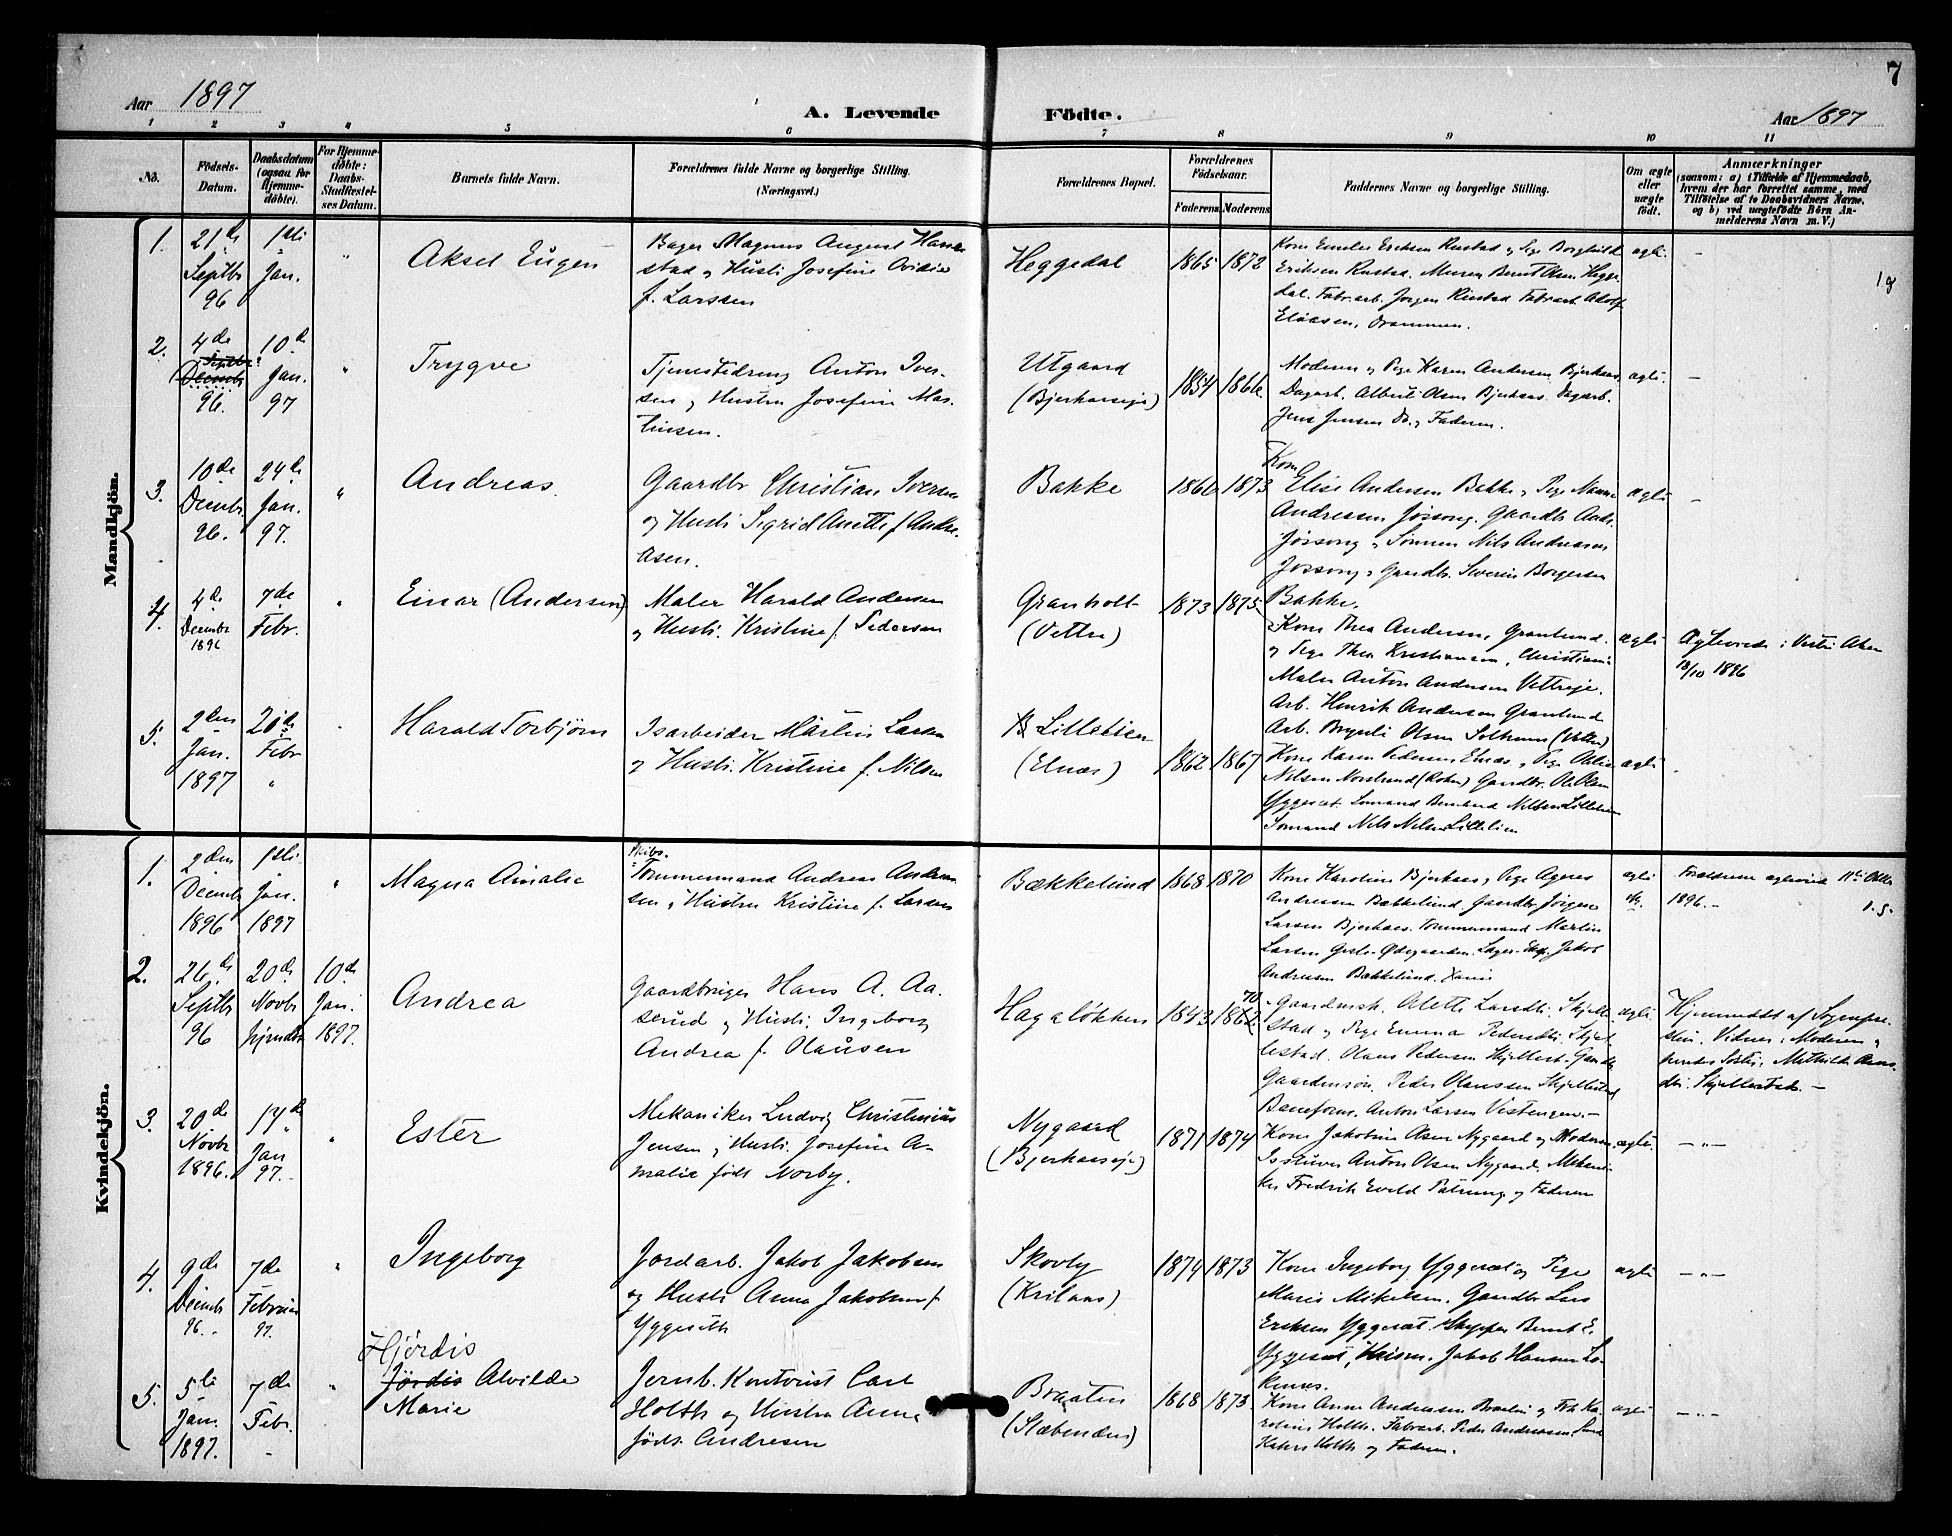 7
Aar 1897
A. Levende Födte.
Aar 1897
1 2 3 4 5 6 7 8 9 10 11
No.
Födsels-Datum.
Daabsdatum (ogsaa for Hjemme-döbte).
For Hjemme-döbte: Daabs-Stadfæstel-ses Datum.
Barnets fulde Navn.
Forældrenes fulde Navne og borgerlige Stilling.
(Næringsvei.)
Forældrenes Bopæl.
Forældrenes Födselsaar.
Faderens Moderens
Faddernes Navne og borgerlige Stilling.
Om ægte eller uægte födt.
Anmærkninger
(saasom: a) i Tilfælde af Hjemmedaab, hvem der har forrettet samme, med Tilföielse af to Daabsvidners Navne, og b) ved uægtefödte Börn Anmelderens Navn m. V.)
Mandkjön.
1.
21de Septbr 96
1ste Jan.
"
Aksel Eugen
Bager Magnus August
stad og Hustr. Josefine Ovidia
f. Larssen
Heggedal
1865 1872
Kone Emelie Eriksen Rustad og Pige Borghild
Eriksen Rustad. Murer Bernt Olsen Hegge-
dal. Fabr.arb. Jørgen Rustad Fabr.arb. Adolf
Eliasen, Drammen.
ægte.
–
2.
4de Septbr Decembr 96.
10de Jan. 97
"
Trygve
Tjenestedreng Anton Iver-
sen og Hustru Josefine Mar-
tinsen.
Utgaard
(Bjerkaaseje)
1854 1866
Moderen og Pige Karen Andersen, Bjerkaas.
Dagarb. Albert Olsen Bjerkaas. Dagarb.
Jens Jensen Do. og Faderen.
ægte.
–
3.
10de Decembr 96.
24de Jan. 97.
"
Andreas.
Gaardbr Christian Iversen
og Hustr. Sigrid Anette f. Andre-
asen.
Bakke
1866 1873
Kone
Elise Andersen Bakke og Pige
Andreasen Jøssong. Gaardbr. Andr.
Jøssong og Sønnen Nils Andreasen
Jøssong og Gaardbr. Severin Borgersen
Bakke.
ægte
–
4.
4de Decembr 1896
7de Febr.
"
Einar (Andersen)
Maler Harald Andersen
og Hustr. Kristine f. Pedersen
Granholt
(Vettre)
1873 1875
Kone Thea Andersen, Granlund
og Pige Thea Kristiansen, Christiania
Maler Anton Andersen Vettreeje.
Arb. Henrik Andersen Granlund
Arb. Olsen (Vettre)
ægte
Ægteviede i Vestre Aker
18/10 1896
5.
2den Jan. 1897
Febr
"
Harald Torbjørn
Isarbeider Martin Larsen
og Hustr. Kristine f. Nilsen
Lillelien
(Elnæs)
1862 1867
Kone Karen Pedersen Elnæs og Pige
Nilsen Norslund (Asker) Gaardbr. Ole Olsen
Yggeset. Sømand Bernhard Nilsen Lillelien
Sømand Nils Nilsen Lillelien
ægte
Kvindekjön.
1.
2den Decembr 1896
1ste Jan. 1897
"
Magna Amalie
Skibs-
Tømmermand Andreas Andrea-
sen og Hustru Kristine f. Larsen
Bækkelund
1868 1870
Kone Karoline Bjerkaas og Pige Agnes
Andreasen Bækkelund Gaardbr. Jørgen
Larsen Bjerkaas. Tømmermand Martin
Larsen Jakob
Andreasen Bækkelund.
ægte
Forældrene ægteviede 11te Oktbr
1896.–
2.
26de Septbr 96
20de Novbr hjemdbt
10de Jan. 1897.
Andrea
Gaardbruger Hans A. Aa-
serud og Hustr. Ingeborg
Andrea f. Olausen
Hagaløkken
1843 1862 70
Gaardmsk. Odette Larsdtr. Skjelle-
stad og Pige Emma Pedersdtr. Skjel-
lestad. Olaus Pedersen Skjellest. Gaardbr.
Gaardmsøn. Peder Olaussen Skjellestad
Baneform. Anton Larsen Vestengen.–
ægte.
Hjemmedøbt af Sognepre-
sten. Vidner: Moderen og
hendes Søster Mathilde
Skjellestad.–
3.
20de Novbr 1896.
17de Jan 97.
"
Ester
Mekaniker Ludvig Christinius
Jensen og Hustr. Josefine A-
malie født Norby.
Nygaard
(Bjerkaaseje)
1871 1874
Kone Jakobine Olsen Nygaard og Moderen.
Isstuver Anton Olsen Nygaard. Mekani-
ker Fredrik Evald og Faderen
ægte.
–"–
4.
9de Decembr 96.
7de Februar 97.
"
Ingeborg
Jordarb. Jakob Jakobsen
og Hustr. Anna Jakobsen f.
Yggeseth
Skovly
(Krilaas)
1874 1873
Kone Ingeborg Yggeset og Pige
Marie Mikelsen. Gaardbr Lars
Eriksen Yggeset. Skipper Bernt E.
Yggeset, Jakob Hansen
ægte
–"–
5.
5te Jan. 1897.
7de Febr.
"
Hjördis
Jördis Alvilde
Marie
Jernb. Kontorist Carl
Holth og Hustru Anna
født Andresen
Braaten
(Slæbenden)
1868 1873
Kone Anna Andreasen Braaten og Frk Ka-
roline Holth. Fabrarb. Peder Andreasen
Holth og Faderen.
ægte
–"–